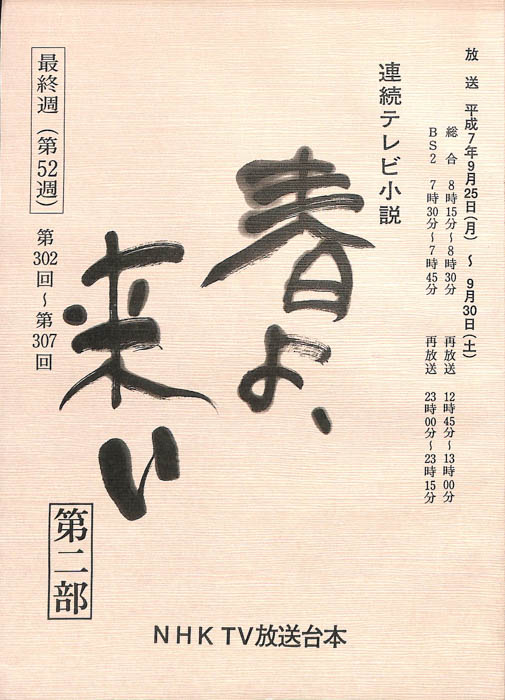 放送 平成7年9月25日(月)〜9月30日(土)
総合 8時15分〜8時30分 再放送 12時45分〜13時00分
BS2 7時30分〜7時45分 再放送 23時00分〜23時15分
連続テレビ小説
春よ、
来い
第二部
最終週(第52週)
第302回〜第307回
NHK TV放送台本